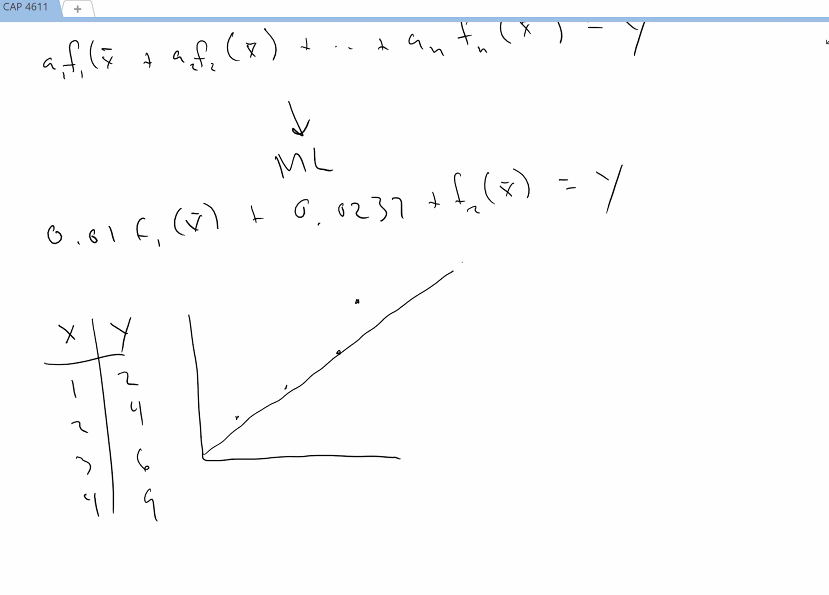 CAP 4611
a₁f₁(x̄ + a₂f₂(x̄) + .. + aₙ fₙ(x̄) = y
↓
ML
0.01 f₁(x̄) + 0.0237 + f₂(x̄) = y
X Y
1 2
2 4
3 6
4 9